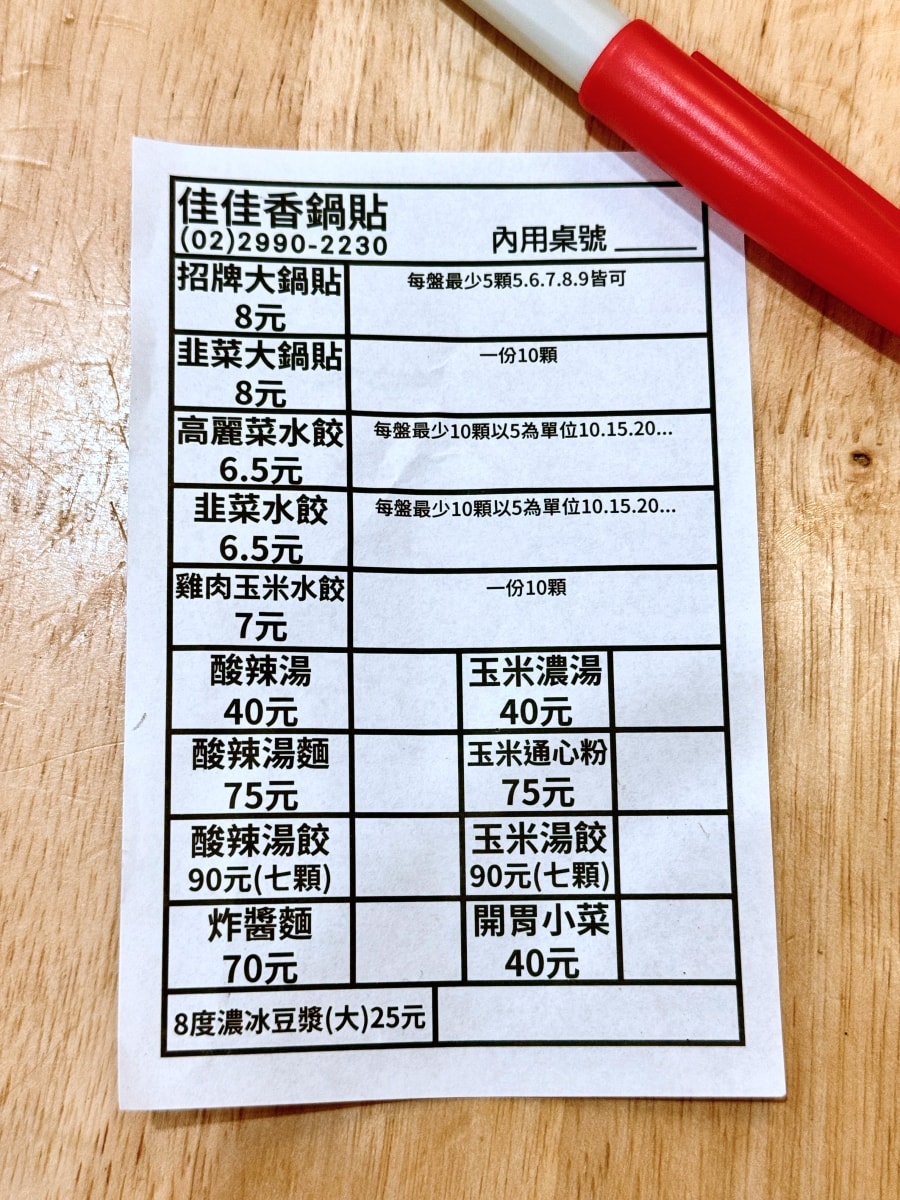 佳佳香鍋貼
(02)2990-2230
內用桌號
招牌大鍋貼
8元
每盤最少5顆5.6.7.8.9皆可
韭菜大鍋貼
8元
一份10顆
高麗菜水餃
6.5元
每盤最少10顆以5為單位10.15.20...
韭菜水餃
6.5元
每盤最少10顆以5為單位10.15.20...
雞肉玉米水餃
7元
一份10顆
酸辣湯
40元
玉米濃湯
40元
酸辣湯麵
75元
玉米通心粉
75元
酸辣湯餃
90元(七顆)
玉米湯餃
90元(七顆)
炸醬麵
70元
開胃小菜
40元
8度濃冰豆漿(大)25元